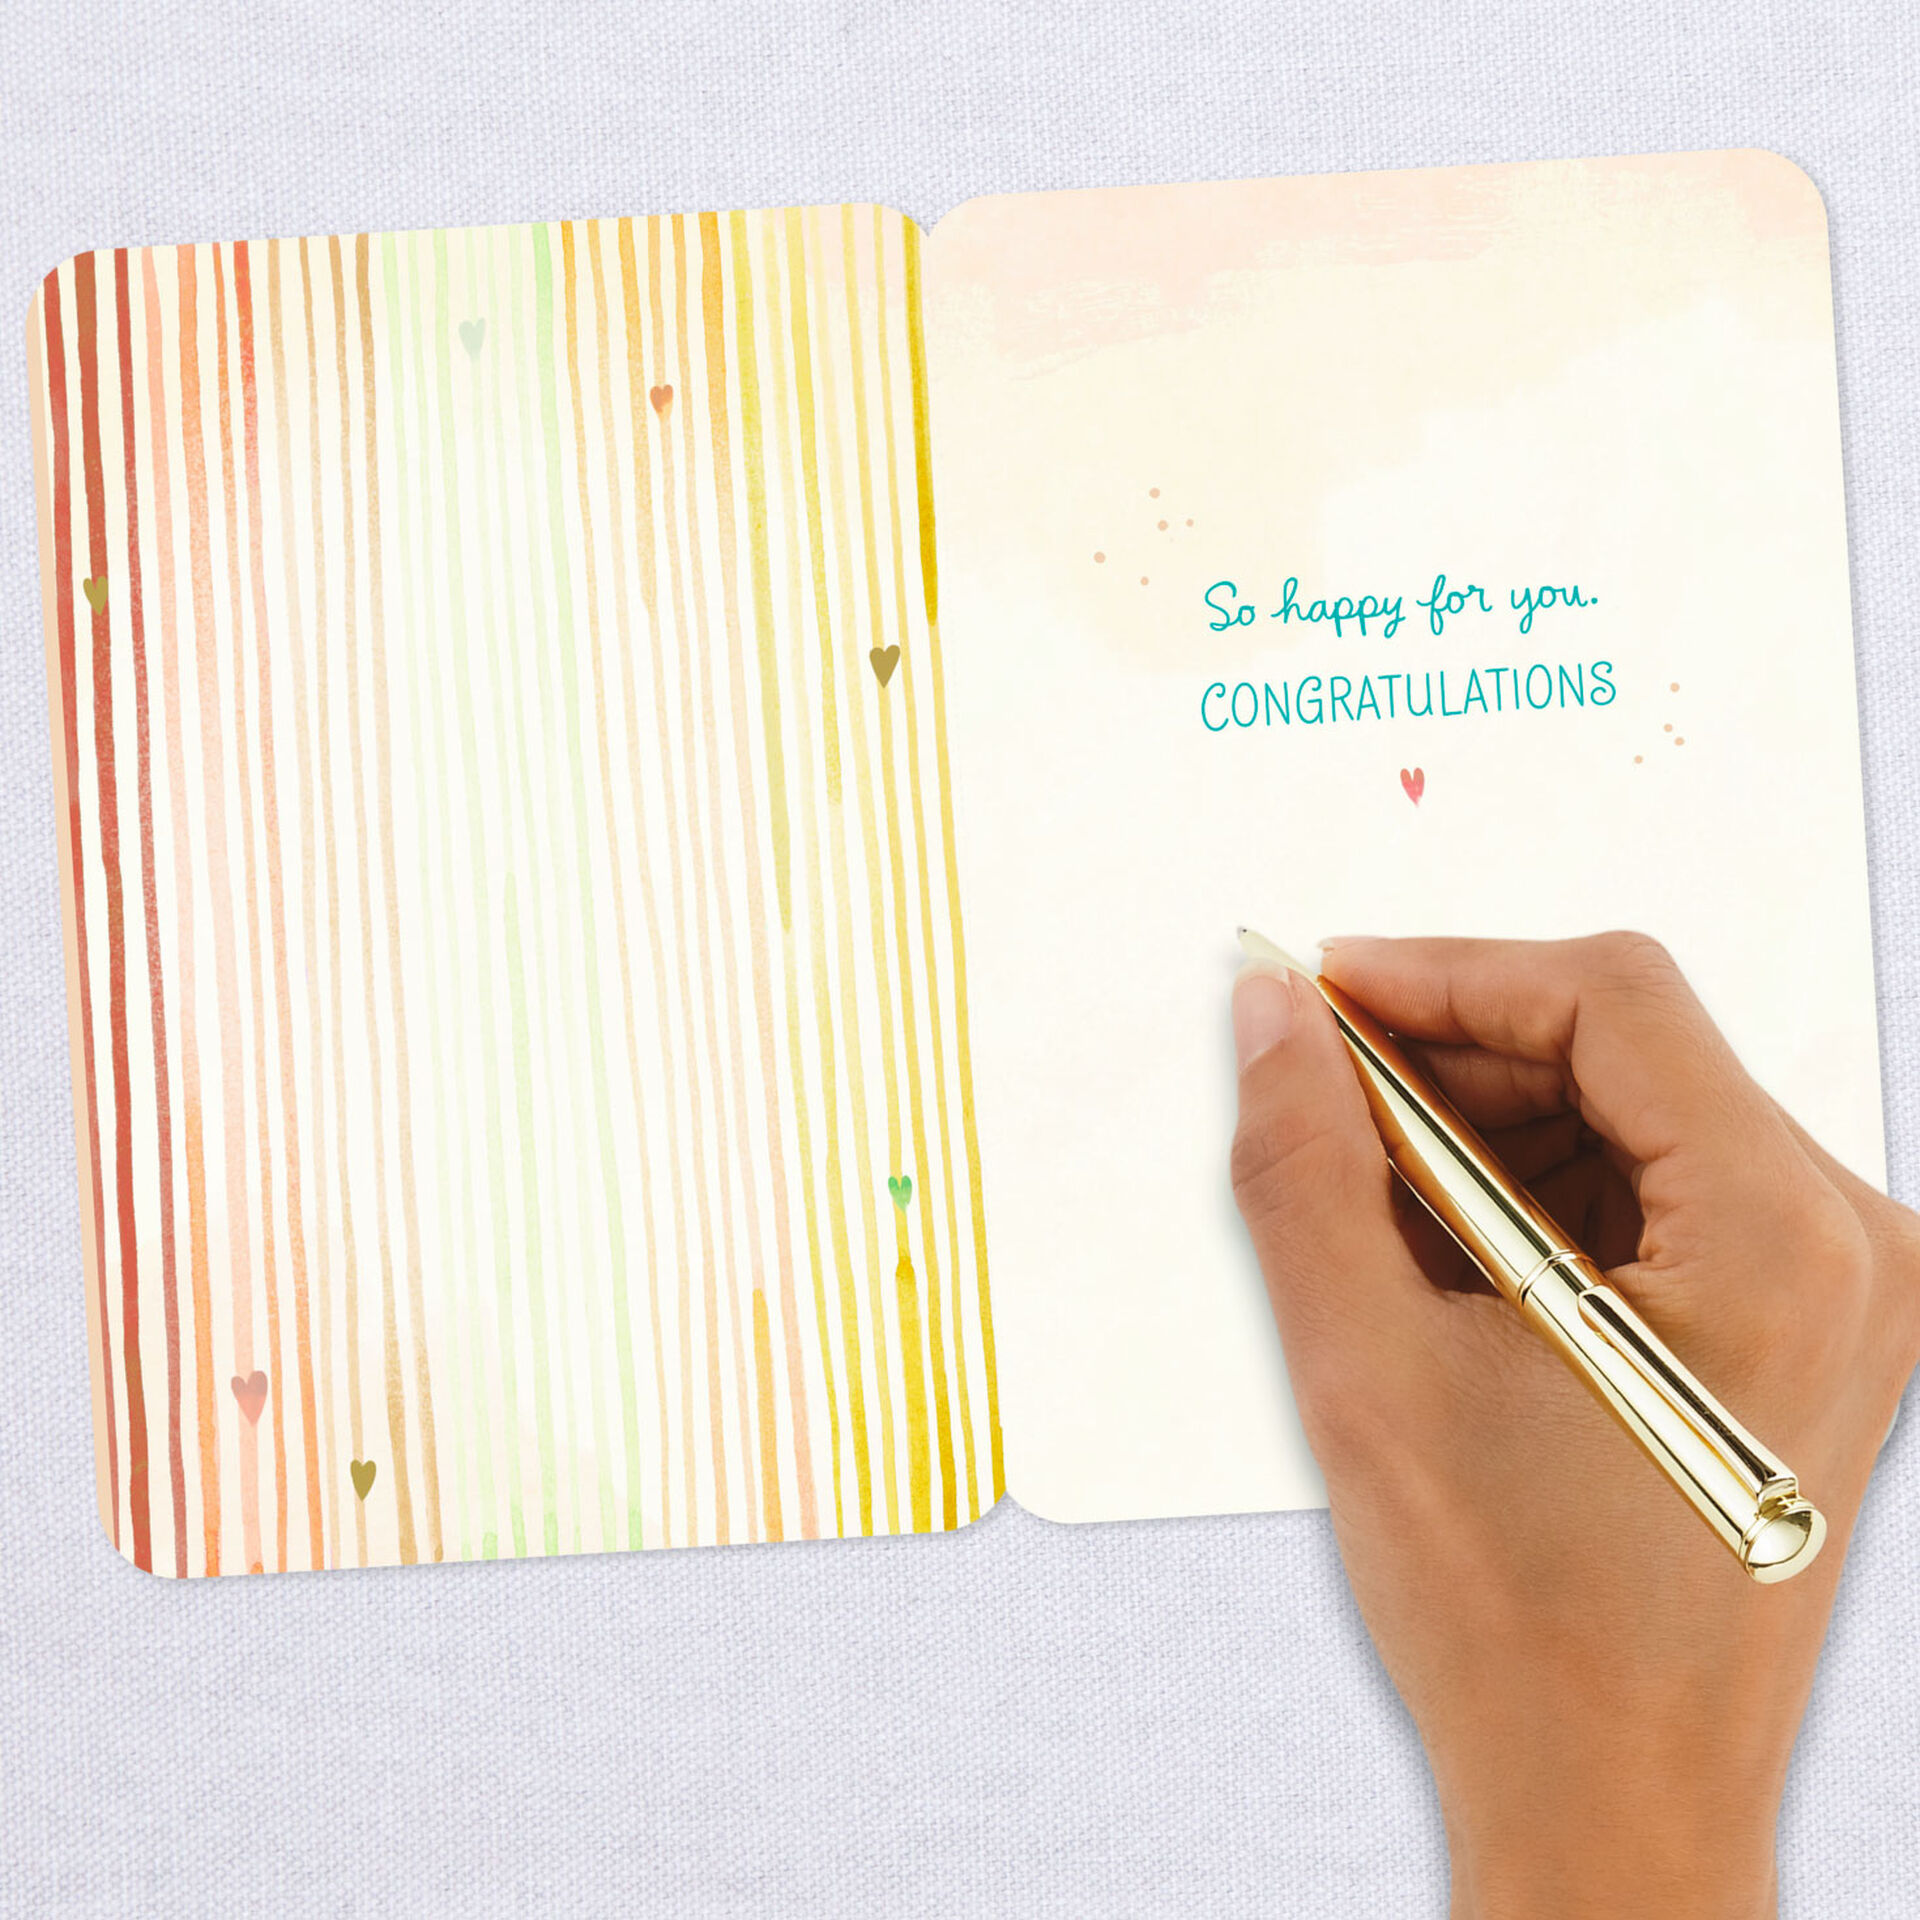 So happy for you.
CONGRATULATIONS